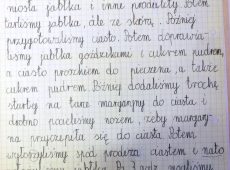 niosła jabłka i inne produkty. Potem
tarliśmy jabłka, ale ze skórą. Później
przygotowaliśmy ciasto. Potem doprawia-
liśmy jabłka goździkami i cukrem pudrem,
a ciasto proszkiem do pieczenia, a także
cukrem pudrem. Później dodaliśmy trochę
startej na tarce margaryny do ciasta i
drobno pocieliśmy nożem, żeby margary-
na przyczepiła się do ciasta. Potem
wyłożyliśmy spód prodiża ciastem i na to
jabłka. Po 3 godz. mogliśmy